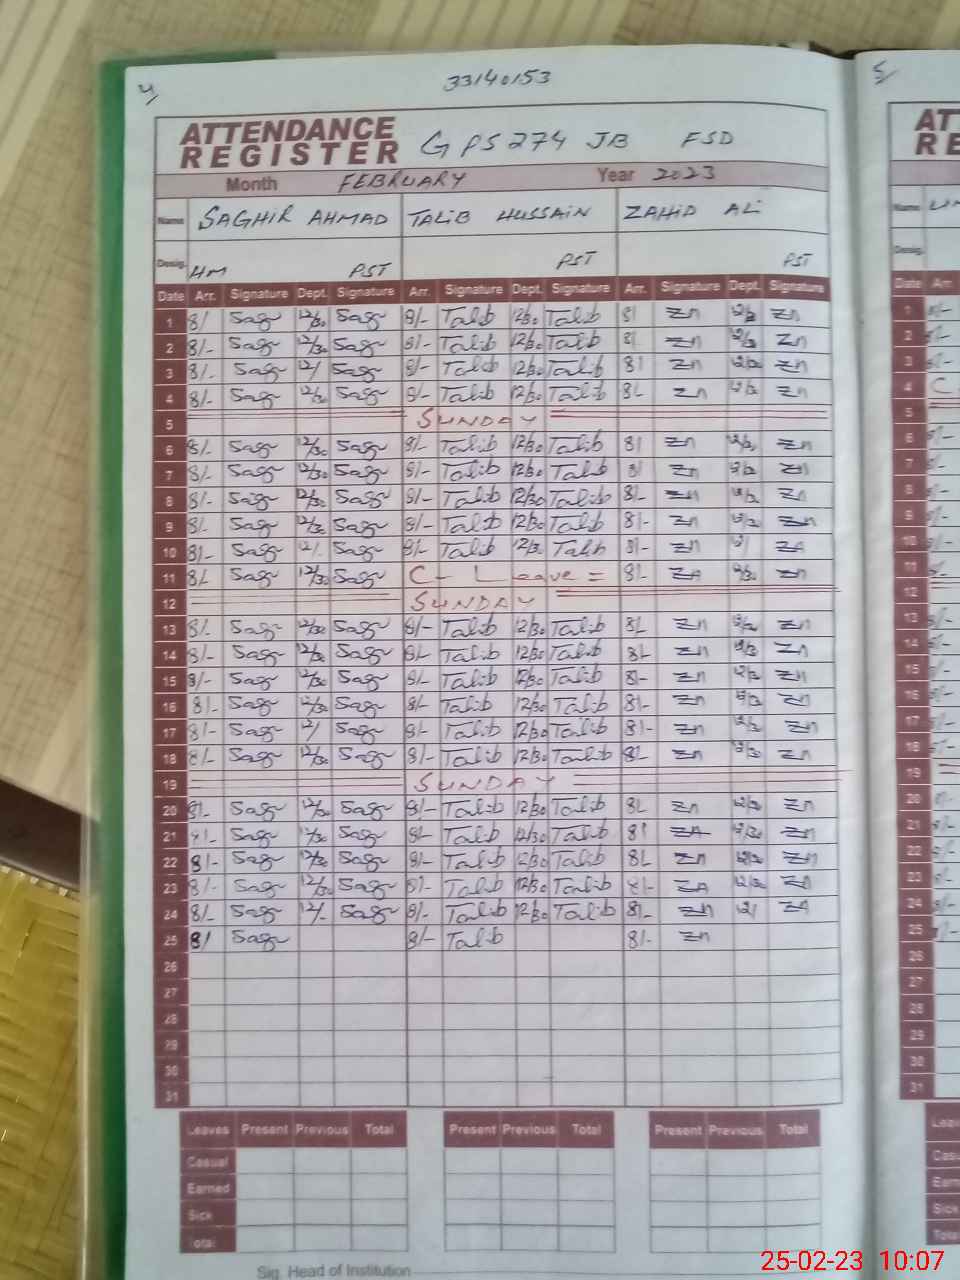 4/ 33140153 5/
ATTENDANCE
REGISTER GPS 274 JB FSD
Month FEBRUARY Year 2023
Name SAGHIR AHMAD TALIB HUSSAIN ZAHID ALI
Desig. HM PST PST PST
Date Arr. Signature Dept. Signature Arr. Signature Dept. Signature Arr. Signature Dept. Signature
1 8/ Sagr 12/30 Sagr 8/- Talib 12/30 Talib 8/ Zn Zn
2 8/- Sagr 12/30 Sagr 8/- Talib 12/30 Talib 8/ Zn Zn
3 8/- Sagr 12/ Sagr 8/- Talib 12/30 Talib 8/ Zn Zn
4 8/- Sagr 12/30 Sagr 8/- Talib 12/30 Talib 8/- Zn Zn
5 SUNDAY
6 8/- Sagr 12/30 Sagr 8/- Talib 12/30 Talib 8/ Zn Zn
7 8/- Sagr 12/30 Sagr 8/- Talib 12/30 Talib 8/ Zn Zn
8 8/- Sagr 12/30 Sagr 8/- Talib 12/30 Talib 8/- Zn Zn
9 8/- Sagr 12/30 Sagr 8/- Talib 12/30 Talib 8/- Zn Zn
10 8/- Sagr 12/- Sagr 8/- Talib 12/30 Talib 8/- Zn 12/ ZA
11 8/- Sagr 12/30 Sagr C- Leave = 8/- ZA 12/30 Zn
12 SUNDAY
13 8/- Sagr 12/30 Sagr 8/- Talib 12/30 Talib 8/- Zn Zn
14 8/- Sagr 12/30 Sagr 8/- Talib 12/30 Talib 8/- Zn Zn
15 8/- Sagr 12/30 Sagr 8/- Talib 12/30 Talib 8/- Zn Zn
16 8/- Sagr 12/30 Sagr 8/- Talib 12/30 Talib 8/- Zn Zn
17 8/- Sagr 12/ Sagr 8/- Talib 12/30 Talib 8/- Zn Zn
18 8/- Sagr 12/30 Sagr 8/- Talib 12/30 Talib 8/- Zn Zn
19 SUNDAY
20 8/- Sagr 12/30 Sagr 8/- Talib 12/30 Talib 8/- Zn 12/30 Zn
21 8/- Sagr 12/30 Sagr 8/- Talib 12/30 Talib 8/ ZA 12/30 Zn
22 8/- Sagr 12/30 Sagr 8/- Talib 12/30 Talib 8/- Zn 12/30 Zn
23 8/- Sagr 12/30 Sagr 8/- Talib 12/30 Talib 8/- ZA 12/30 Zn
24 8/- Sagr 12/- Sagr 8/- Talib 12/30 Talib 8/- Zn 12/ ZA
25 8/ Sagr 8/- Talib 8/- Zn
26
27
28
29
30
31
Leaves Present Previous Total Present Previous Total Present Previous Total
Casual
Earned
Sick
Total
Sig. Head of Institution
25-02-23 10:07